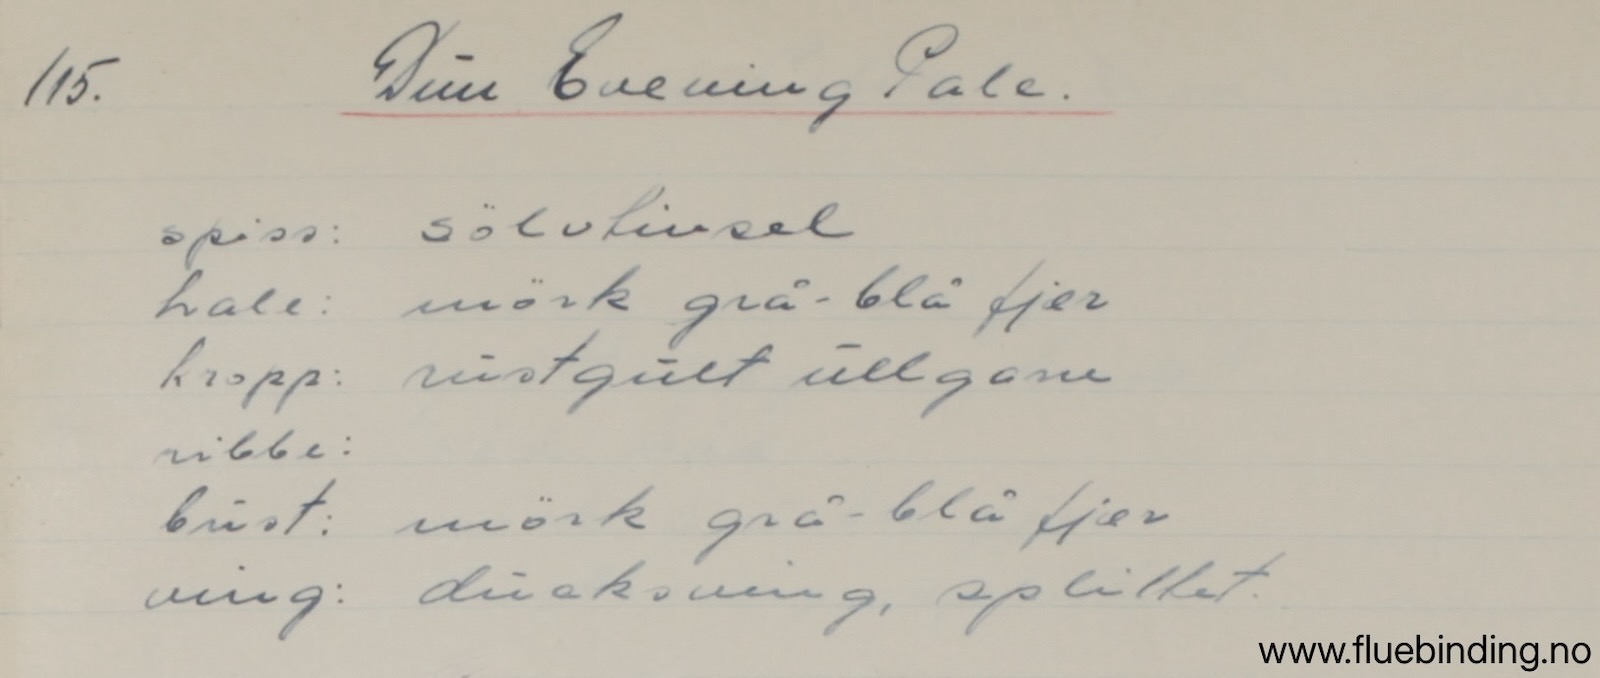 115. Dun Evening Pale.
spiss: sölvtinsel
hale: mörk grå-blå fjær
kropp: rustgult ullgarn
ribbe:
bust: mörk grå-blå fjær
ving: ducksving, splittet.
www.fluebinding.no